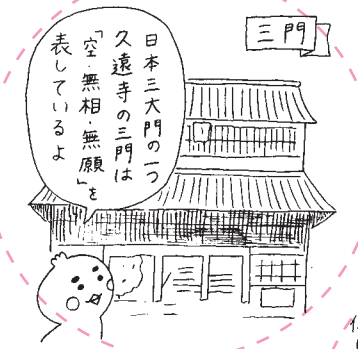 三門
日本三大門の一つ
久遠寺の三門は
「空・無相・無願」を
表しているよ